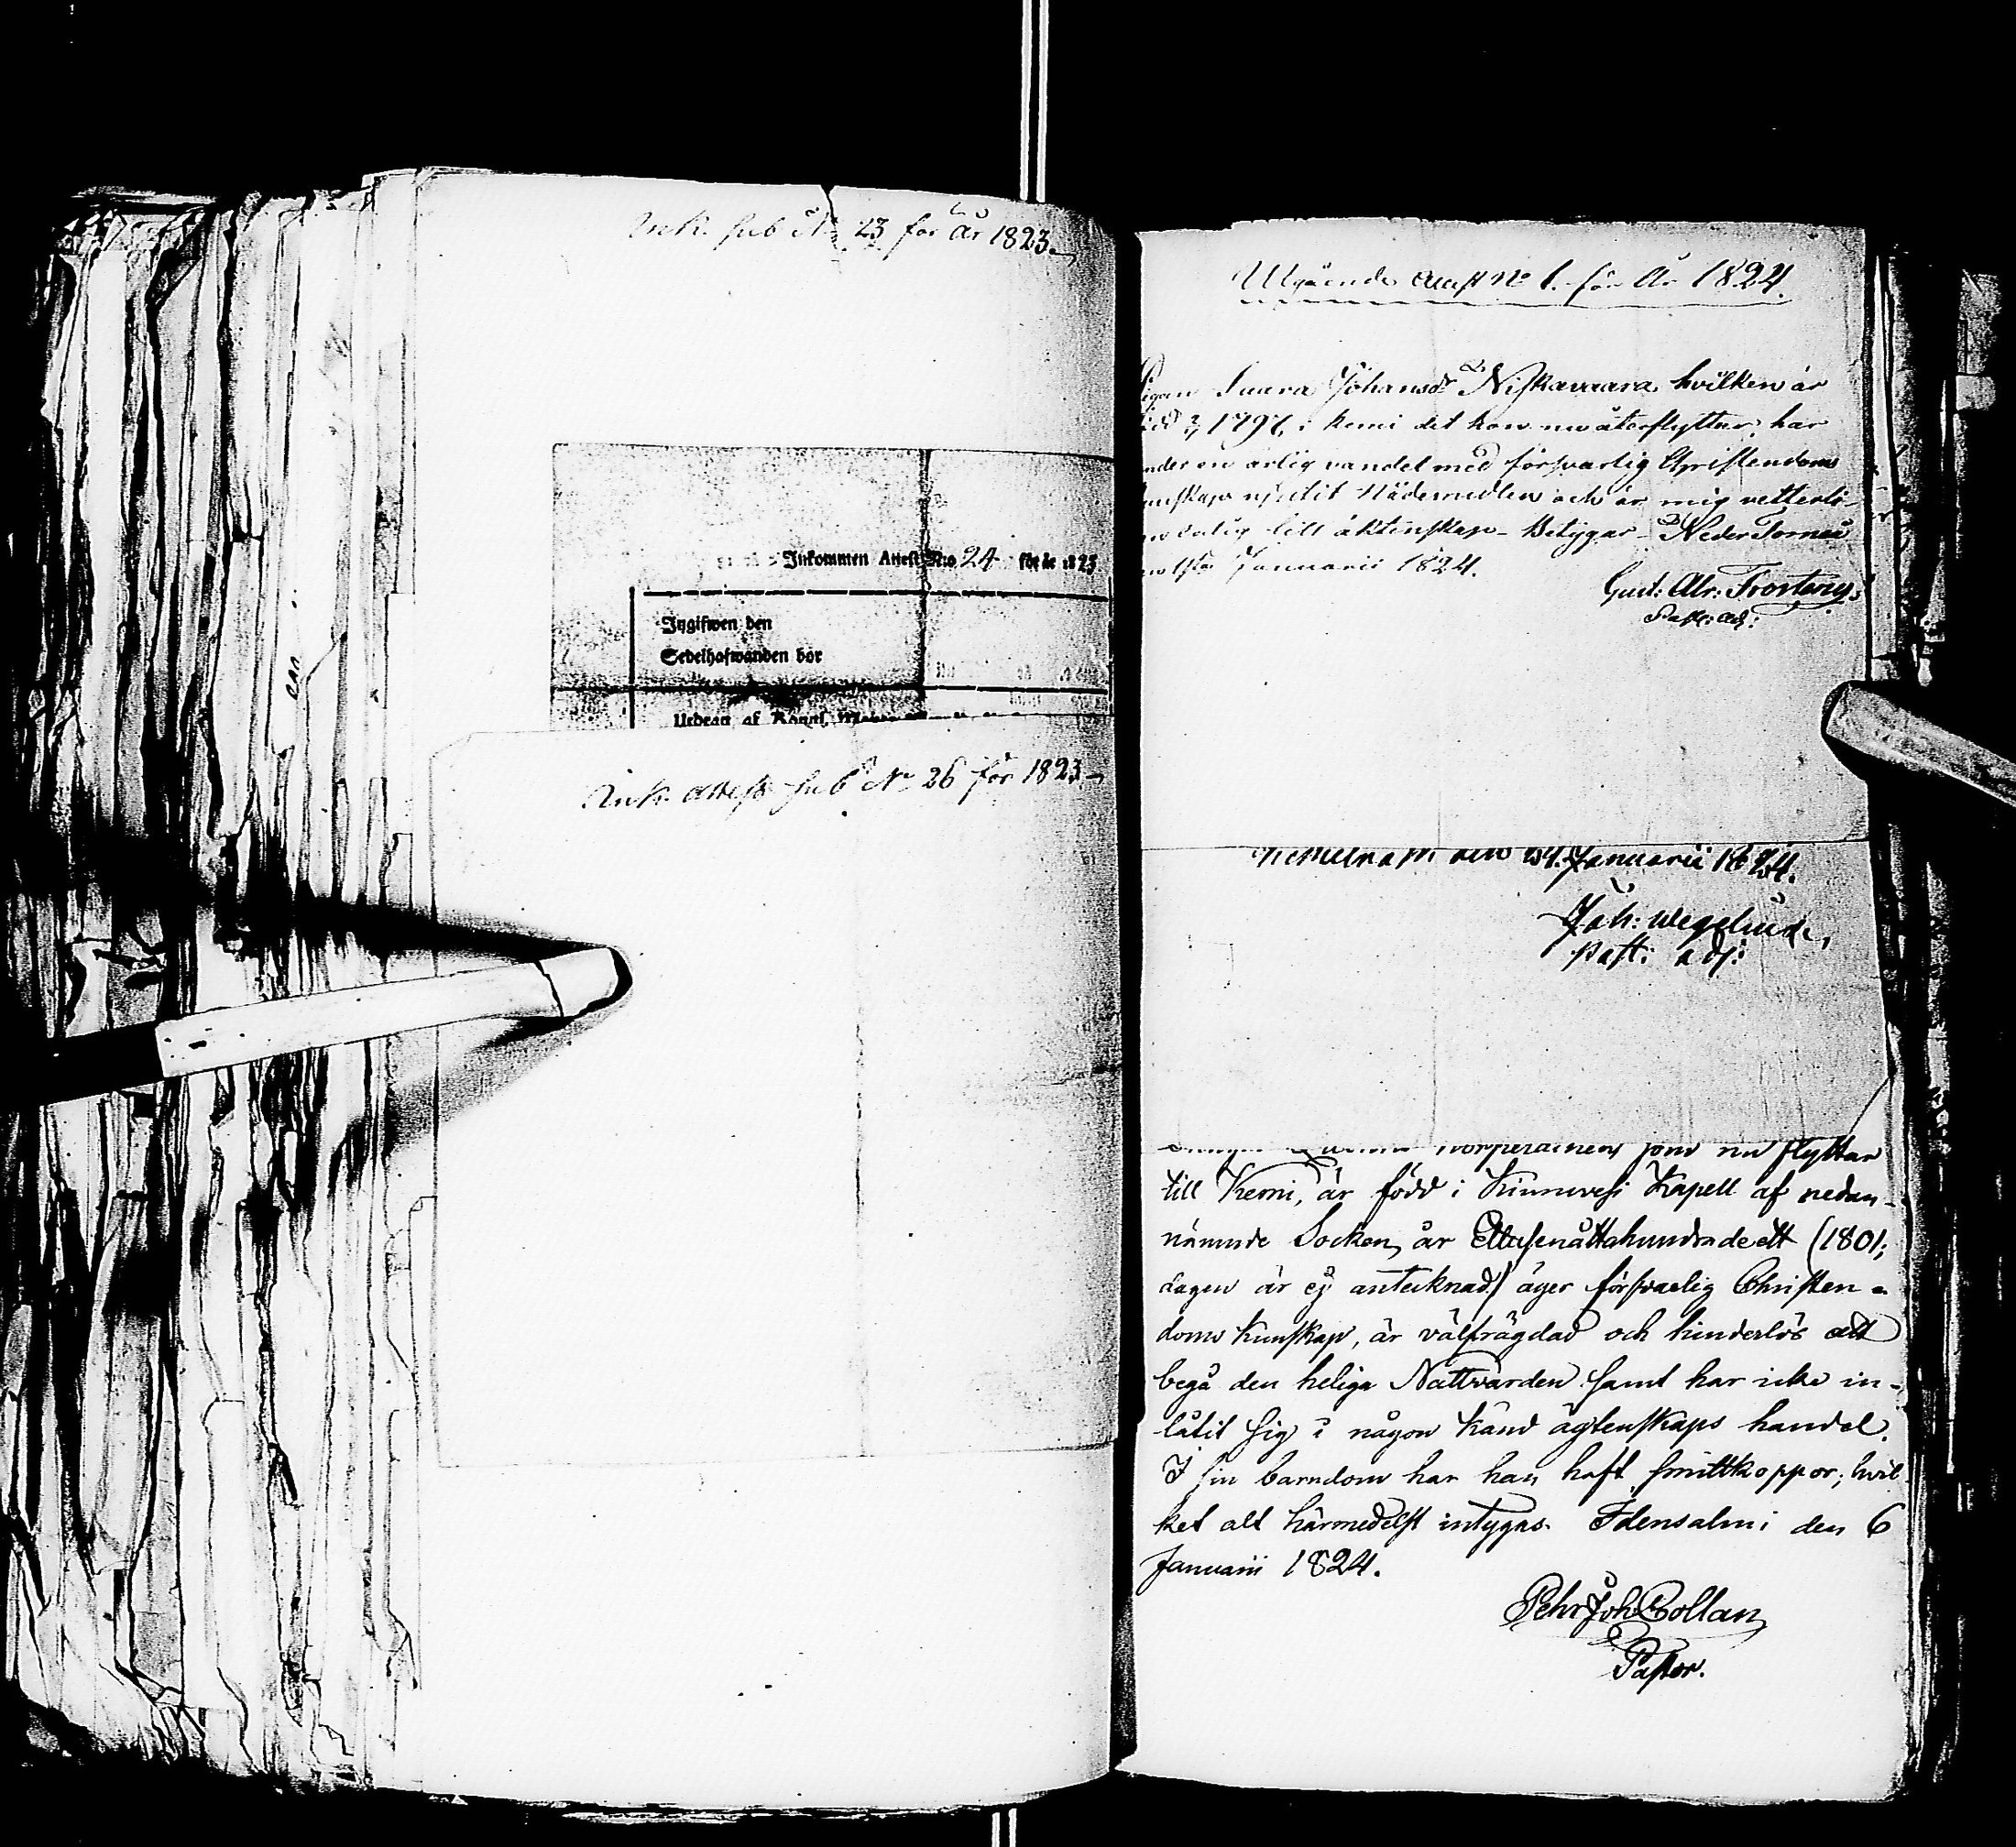 Ink. sub N:o 23 för år 1823.
Inkommen Attest N:o 24 för år 1823
Ingifwen den
Sedelhafwanden bör
Utdrag af Kongl.
Ink. attest sub N:o 26 för 1823.
Utgående attest N:o 1. för År 1824.
Johansdr Niskavaara, hvilken är
1797, i Kemi dit hon nu återflyttar, har
under en ärlig vandel med försvarlig Christendoms
kunskap njutit Nådemedlen och är mig vetterli-
ledig till äktenskap - Betygar - Neder Torneå
Januarii 1824.
Gust: Abr: Frosterus
Past: adj:
den 24. Januarii 1824.
Joh: Wegelius,
past: adj:
som nu flyttar
till Kemi, är född i Kiuruvesi Kapell af nedan-
nämnde Socken år Ettusenåttahundradeett (1801;
dagen är ej antecknad) äger försvarlig Christen-
doms kunskap, är välfrägdad och hinderlös att
begå den heliga Nattvarden samt har icke in-
låtit sig i någon känd ägtenskaps handel.
I sin barndom har han haft smittkoppor; hvil-
ket alt härmedelst intygas. Idensalmi den 6
Januarii 1824.
Pehr Joh Collan
Pastor.